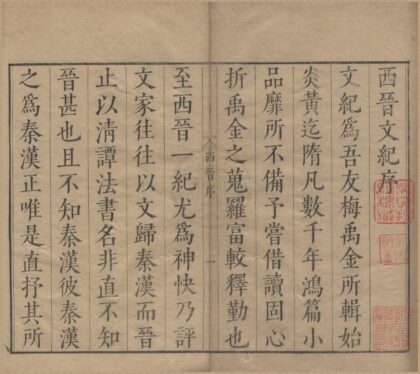 西晉文紀序
文紀爲吾友梅禹金所輯始
炎黃迄隋凡數千年鴻篇小
品靡所不備予嘗借讀固心
折禹金之蒐羅富較釋勤也
西晉序
一
至西晉一紀尤爲神快乃評
文家往往以文歸秦漢而晉
止以清譚法書名非直不知
晉甚也且不知秦漢彼秦漢
之爲秦漢正唯是直抒其所